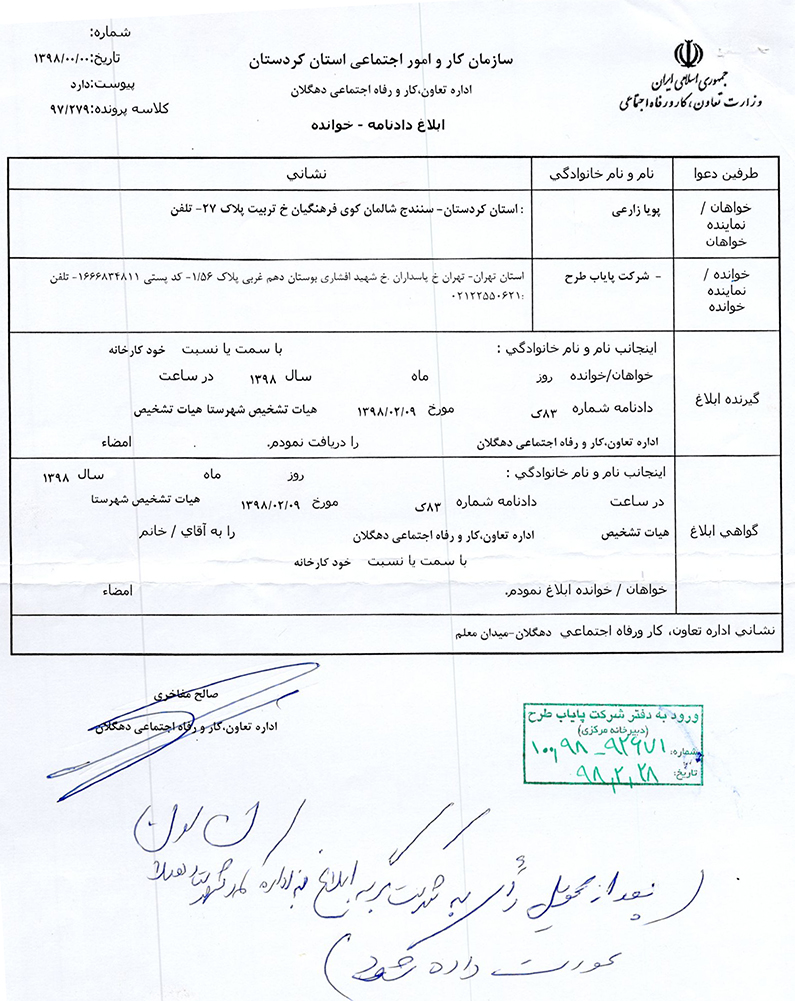 جمهوری اسلامی ایران
وزارت تعاون، کار و رفاه اجتماعی
سازمان کار و امور اجتماعی استان کردستان
اداره تعاون،کار و رفاه اجتماعی دهگلان
ابلاغ دادنامه - خوانده
شماره:
تاریخ:۱۳۹۸/۰۰/۰۰
پیوست:دارد
کلاسه پرونده:۹۷/۲۷۹
طرفین دعوا
نام و نام خانوادگي
نشاني
خواهان /
نماینده
خواهان
پویا زارعی
: استان کردستان- سنندج شالمان کوی فرهنگیان خ تربیت پلاک ۲۷- تلفن
خوانده /
نماینده
خوانده
- شرکت پایاب طرح
استان تهران- تهران خ پاسداران .خ شهید افشاری بوستان دهم غربی پلاک ۱/۵۶- کد پستی ۱۶۶۶۸۳۴۸۱۱- تلفن
:۰۲۱۲۲۵۵۰۶۲۱
گیرنده ابلاغ
اینجانب نام و نام خانوادگي : با سمت یا نسبت خود کارخانه
خواهان/خوانده روز ماه سال ۱۳۹۸ در ساعت
دادنامه شماره ۸۳ک مورخ ۱۳۹۸/۰۲/۰۹ هیات تشخیص شهرستا هیات تشخیص
اداره تعاون،کار و رفاه اجتماعی دهگلان را دریافت نمودم. . امضاء
گواهي ابلاغ
اینجانب نام و نام خانوادگي : روز ماه سال ۱۳۹۸
در ساعت دادنامه شماره ۸۳ک مورخ ۱۳۹۸/۰۲/۰۹ هیات تشخیص شهرستا
هیات تشخیص اداره تعاون،کار و رفاه اجتماعی دهگلان را به آقاي / خانم
با سمت یا نسبت خود کارخانه
خواهان / خوانده ابلاغ نمودم. امضاء
نشاني اداره تعاون، کار ورفاه اجتماعي دهگلان-میدان معلم
صالح مفاخری
اداره تعاون،کار و رفاه اجتماعی دهگلان
ورود به دفتر شرکت پایاب طرح
(دبیرخانه مرکزی)
شماره: ۱۰۰٫۹۸ - ۹۲۶۷۱
تاریخ: ۹۸٫۲٫۲۸
(بعد از تحویل رأی به شرکت برگه ابلاغ به اداره کار شهرستان دهگلان
عودت داده شود)